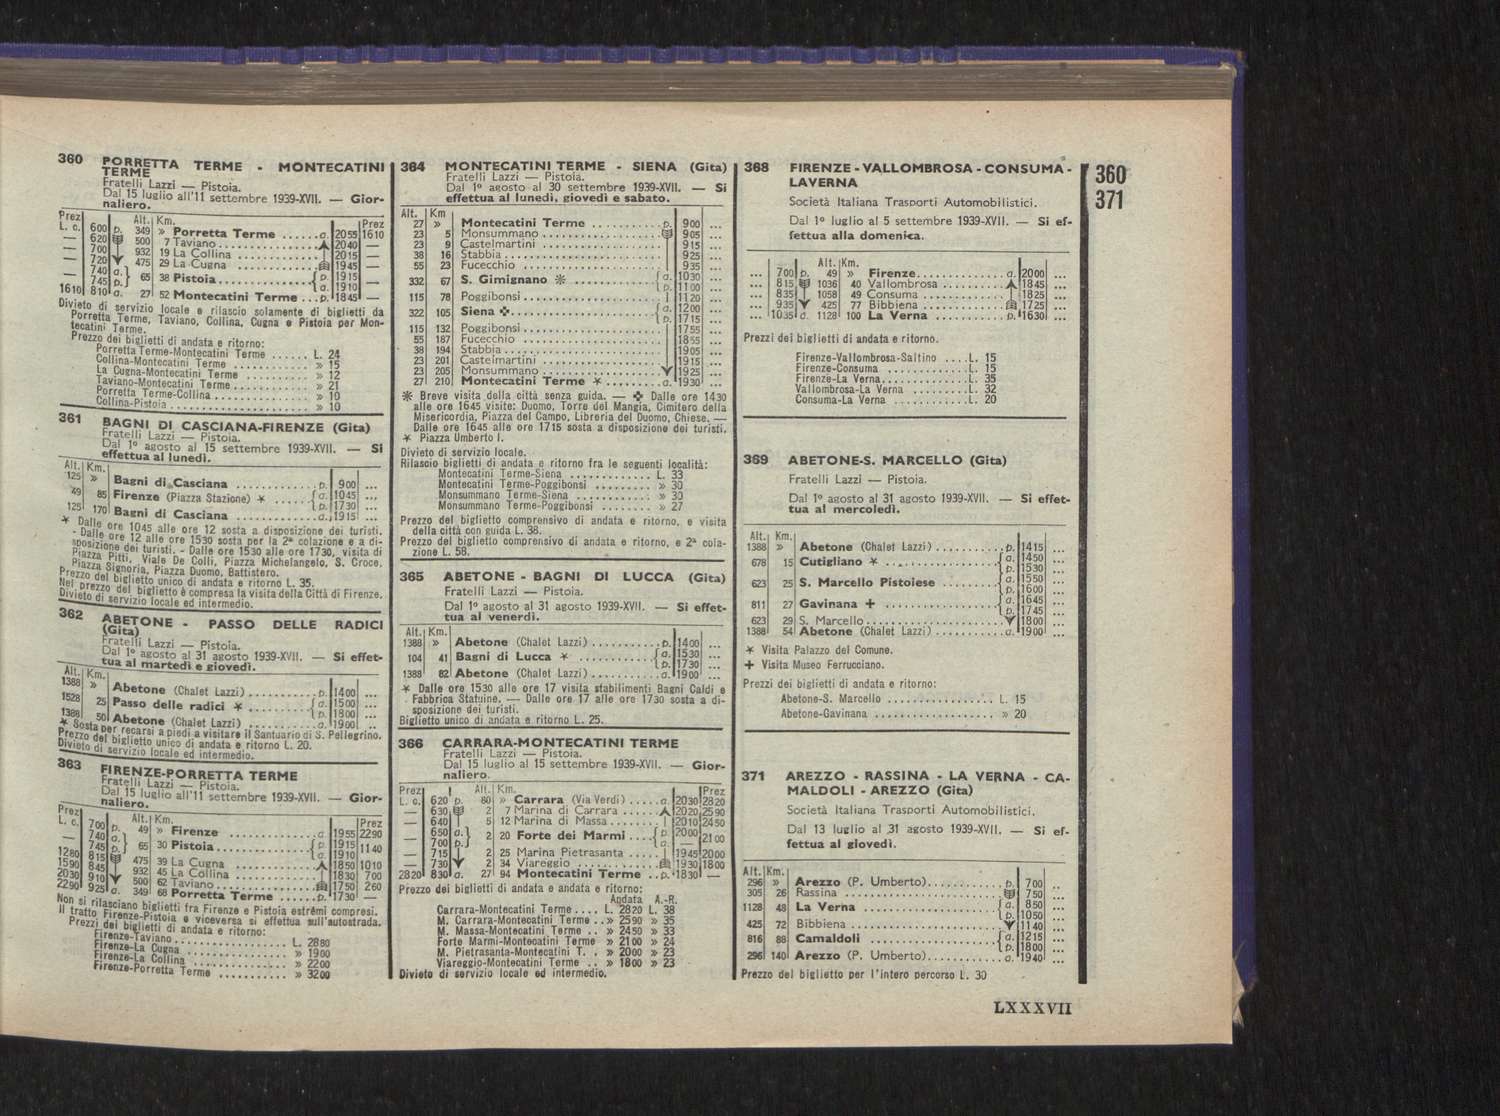 360 PORRETTA TERME - MONTECATINI
TERME
Fratelli Lazzi — Pistoia.
Dal 15 luglio all'11 settembre 1939-XVII. — Gior-
naliero.
Prez Alt. Km. Prez
L. c. 600 p. 349 » Porretta Terme ...... a. 2055 1610
— 620 500 7 Taviano 2040 —
— 700 932 19 La Collina 2015 —
— 720 475 29 La Cugna 1945 —
— 740 a. 65 38 Pistoia p. 1915 —
745 p. a. 1910
1610 810 a. 27 52 Montecatini Terme ... p. 1845 —
Divieto di servizio locale e rilascio solamente di biglietti da
Porretta Terme, Taviano, Collina, Cugna e Pistoia per Mon-
tecatini Terme.
Prezzo dei biglietti di andata e ritorno:
Porretta Terme-Montecatini Terme ...... L. 24
Collina-Montecatini Terme ............ » 15
La Cugna-Montecatini Terme ........... » 12
Taviano-Montecatini Terme ............ » 21
Porretta Terme-Collina ............... » 10
Collina-Pistoia ...................... » 10
361 BAGNI DI CASCIANA-FIRENZE (Gita)
Fratelli Lazzi — Pistoia.
Dal 1° agosto al 15 settembre 1939-XVII. — Si
effettua al lunedì.
Alt. Km.
125 » Bagni di Casciana ............ p. 900 ...
49 85 Firenze (Piazza Stazione) * ...... a. 1045 ...
p. 1730 ...
125 170 Bagni di Casciana ............ a. 1915 ...
* Dalle ore 1045 alle ore 12 sosta a disposizione dei turisti.
- Dalle ore 12 alle ore 1530 sosta per la 2ª colazione e a di-
sposizione dei turisti. - Dalle ore 1530 alle ore 1730, visita di
Piazza Pitti, Viale De Colli, Piazza Michelangelo, S. Croce,
Piazza Signoria, Piazza Duomo, Battistero.
Prezzo del biglietto unico di andata e ritorno L. 35.
Nel prezzo del biglietto è compresa la visita della Città di Firenze.
Divieto di servizio locale ed intermedio.
362 ABETONE - PASSO DELLE RADICI
(Gita)
Fratelli Lazzi — Pistoia.
Dal 1° agosto al 31 agosto 1939-XVII. — Si effet-
tua al martedì e giovedì.
Alt. Km.
1388 » Abetone (Chalet Lazzi) .......... p. 1400 ...
1528 25 Passo delle radici * ........ a. 1500 ...
p. 1800 ...
1388 50 Abetone (Chalet Lazzi) .......... a. 1900 ...
* Sosta per recarsi a piedi a visitare il Santuario di S. Pellegrino.
Prezzo del biglietto unico di andata e ritorno L. 20.
Divieto di servizio locale ed intermedio.
363 FIRENZE-PORRETTA TERME
Fratelli Lazzi — Pistoia.
Dal 15 luglio all'11 settembre 1939-XVII. — Gior-
naliero.
Prez Alt. Km. Prez
L. c. 700 p. 49 » Firenze ............ a. 1955 2290
— 740 a. 65 30 Pistoia p. 1915 1140
— 745 p. a. 1910
1280 815 475 39 La Cugna 1850 1010
1590 845 932 45 La Collina 1830 700
2030 910 500 62 Taviano 1750 260
2290 925 a. 349 68 Porretta Terme ...... p. 1730 —
Non si rilasciano biglietti fra Firenze e Pistoia estrêmi compresi.
Il tratto Firenze-Pistoia e viceversa si effettua sull'autostrada.
Prezzi dei biglietti di andata e ritorno:
Firenze-Taviano .................. L. 2880
Firenze-La Cugna ................. » 1900
Firenze-La Collina ............... » 2200
Firenze-Porretta Terme ........... » 3200
364 MONTECATINI TERME - SIENA (Gita)
Fratelli Lazzi — Pistoia.
Dal 1° agosto al 30 settembre 1939-XVII. — Si
effettua al lunedì, giovedì e sabato.
Alt. Km
27 » Montecatini Terme ........... p. 900 ...
23 5 Monsummano 905 ...
23 9 Castelmartini 915 ...
38 16 Stabbia 925 ...
55 23 Fucecchio 935 ...
332 67 S. Gimignano ※ a. 1030 ...
p. 1100 ...
115 78 Poggibonsi 1120 ...
322 105 Siena ✤ a. 1200 ...
p. 1715 ...
115 132 Poggibonsi 1755 ...
55 187 Fucecchio 1855 ...
38 194 Stabbia 1905 ...
23 201 Castelmartini 1915 ...
23 205 Monsummano 1925 ...
27 210 Montecatini Terme * ........ a. 1930 ...
※ Breve visita della città senza guida. — ✤ Dalle ore 1430
alle ore 1645 visite: Duomo, Torre del Mangia, Cimitero della
Misericordia, Piazza del Campo, Libreria del Duomo, Chiese. —
Dalle ore 1645 alle ore 1715 sosta a disposizione dei turisti.
* Piazza Umberto I.
Divieto di servizio locale.
Rilascio biglietti di andata e ritorno fra le seguenti località:
Montecatini Terme-Siena ............ L. 33
Montecatini Terme-Poggibonsi ....... » 30
Monsummano Terme-Siena ............ » 30
Monsummano Terme-Poggibonsi ........ » 27
Prezzo del biglietto comprensivo di andata e ritorno, e visita
della città con guida L. 38.
Prezzo del biglietto comprensivo di andata e ritorno, e 2ª cola-
zione L. 58.
365 ABETONE - BAGNI DI LUCCA (Gita)
Fratelli Lazzi — Pistoia.
Dal 1° agosto al 31 agosto 1939-XVII. — Si effet-
tua al venerdì.
Alt. Km.
1388 » Abetone (Chalet Lazzi) ........... p. 1400 ...
104 41 Bagni di Lucca * ............ a. 1530 ...
p. 1730 ...
1388 82 Abetone (Chalet Lazzi) ........... a. 1900 ...
* Dalle ore 1530 alle ore 17 visita stabilimenti Bagni Caldi e
Fabbrica Statuine. — Dalle ore 17 alle ore 1730 sosta a di-
sposizione dei turisti.
Biglietto unico di andata e ritorno L. 25.
366 CARRARA-MONTECATINI TERME
Fratelli Lazzi — Pistoia.
Dal 15 luglio al 15 settembre 1939-XVII. — Gior-
naliero.
Prez Alt. Km. Prez
L. c. 620 p. 80 » Carrara (Via Verdi) ..... a. 2030 2820
— 630 2 7 Marina di Carrara 2020 2590
— 640 5 12 Marina di Massa 2010 2450
— 650 a. 2 20 Forte dei Marmi p. 2000 2100
— 700 p. a. —
— 715 2 25 Marina Pietrasanta 1945 2000
— 730 2 34 Viareggio 1930 1800
2820 830 a. 27 94 Montecatini Terme .. p. 1830 —
Prezzo dei biglietti di andata e andata e ritorno:
Andata A.-R.
Carrara-Montecatini Terme .... L. 2820 L. 38
M. Carrara-Montecatini Terme .. » 2590 » 35
M. Massa-Montecatini Terme .. » 2450 » 33
Forte Marmi-Montecatini Terme » 2100 » 24
M. Pietrasanta-Montecatini T. . » 2000 » 23
Viareggio-Montecatini Terme .. » 1800 » 23
Divieto di servizio locale ed intermedio.
368 FIRENZE - VALLOMBROSA - CONSUMA -
LAVERNA
Società Italiana Trasporti Automobilistici.
Dal 1° luglio al 5 settembre 1939-XVII. — Si ef-
fettua alla domenica.
Alt. Km.
... 700 p. 49 » Firenze ............ a. 2000 ...
... 815 1036 40 Vallombrosa 1845 ...
... 835 1058 49 Consuma 1825 ...
... 935 425 77 Bibbiena 1725 ...
... 1035 a. 1128 100 La Verna ........... p. 1630 ...
Prezzi dei biglietti di andata e ritorno.
Firenze-Vallombrosa-Saltino .... L. 15
Firenze-Consuma ............. L. 15
Firenze-La Verna .............. L. 35
Vallombrosa-La Verna ......... L. 32
Consuma-La Verna ............ L. 20
369 ABETONE-S. MARCELLO (Gita)
Fratelli Lazzi — Pistoia.
Dal 1° agosto al 31 agosto 1939-XVII. — Si effet-
tua al mercoledì.
Alt. Km.
1388 » Abetone (Chalet Lazzi) ........... p. 1415 ...
678 15 Cutigliano * a. 1450 ...
p. 1530 ...
623 25 S. Marcello Pistoiese a. 1550 ...
p. 1600 ...
811 27 Gavinana + a. 1645 ...
p. 1745 ...
623 29 S. Marcello 1800 ...
1388 54 Abetone (Chalet Lazzi) ........... a. 1900 ...
* Visita Palazzo del Comune.
+ Visita Museo Ferrucciano.
Prezzi dei biglietti di andata e ritorno:
Abetone-S. Marcello ................. L. 15
Abetone-Gavinana ................... » 20
371 AREZZO - RASSINA - LA VERNA - CA-
MALDOLI - AREZZO (Gita)
Società Italiana Trasporti Automobilistici.
Dal 13 luglio al 31 agosto 1939-XVII. — Si ef-
fettua al giovedì.
Alt. Km.
296 » Arezzo (P. Umberto) ............. p. 700 ..
305 26 Rassina 750 ..
1128 48 La Verna a. 850 ...
p. 1050 ...
425 72 Bibbiena 1140 ...
816 88 Camaldoli a. 1215 ...
p. 1800 ...
296 140 Arezzo (P. Umberto) ............. a. 1940 ...
Prezzo del biglietto per l'intero percorso L. 30
360
371
LXXXVII